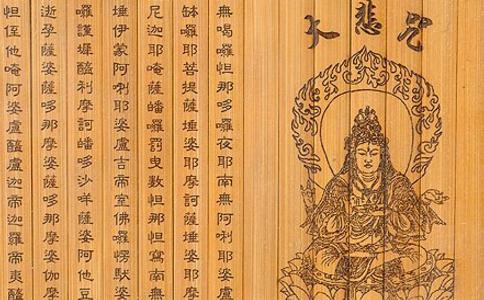 大悲咒
無喝囉怛那哆囉夜耶南無阿唎耶婆盧
缽囉耶菩提薩埵婆耶摩訶薩埵婆耶摩
尼迦耶唵薩皤囉罰曳數怛那怛寫南無
埵伊蒙阿唎耶婆盧吉帝室佛囉愣馱婆
囉謹墀醯利摩訶皤哆沙咩薩婆阿他豆
逝孕薩婆薩哆那摩婆薩哆那摩婆伽摩
怛侄他唵阿婆盧醯盧迦帝迦羅帝夷醯